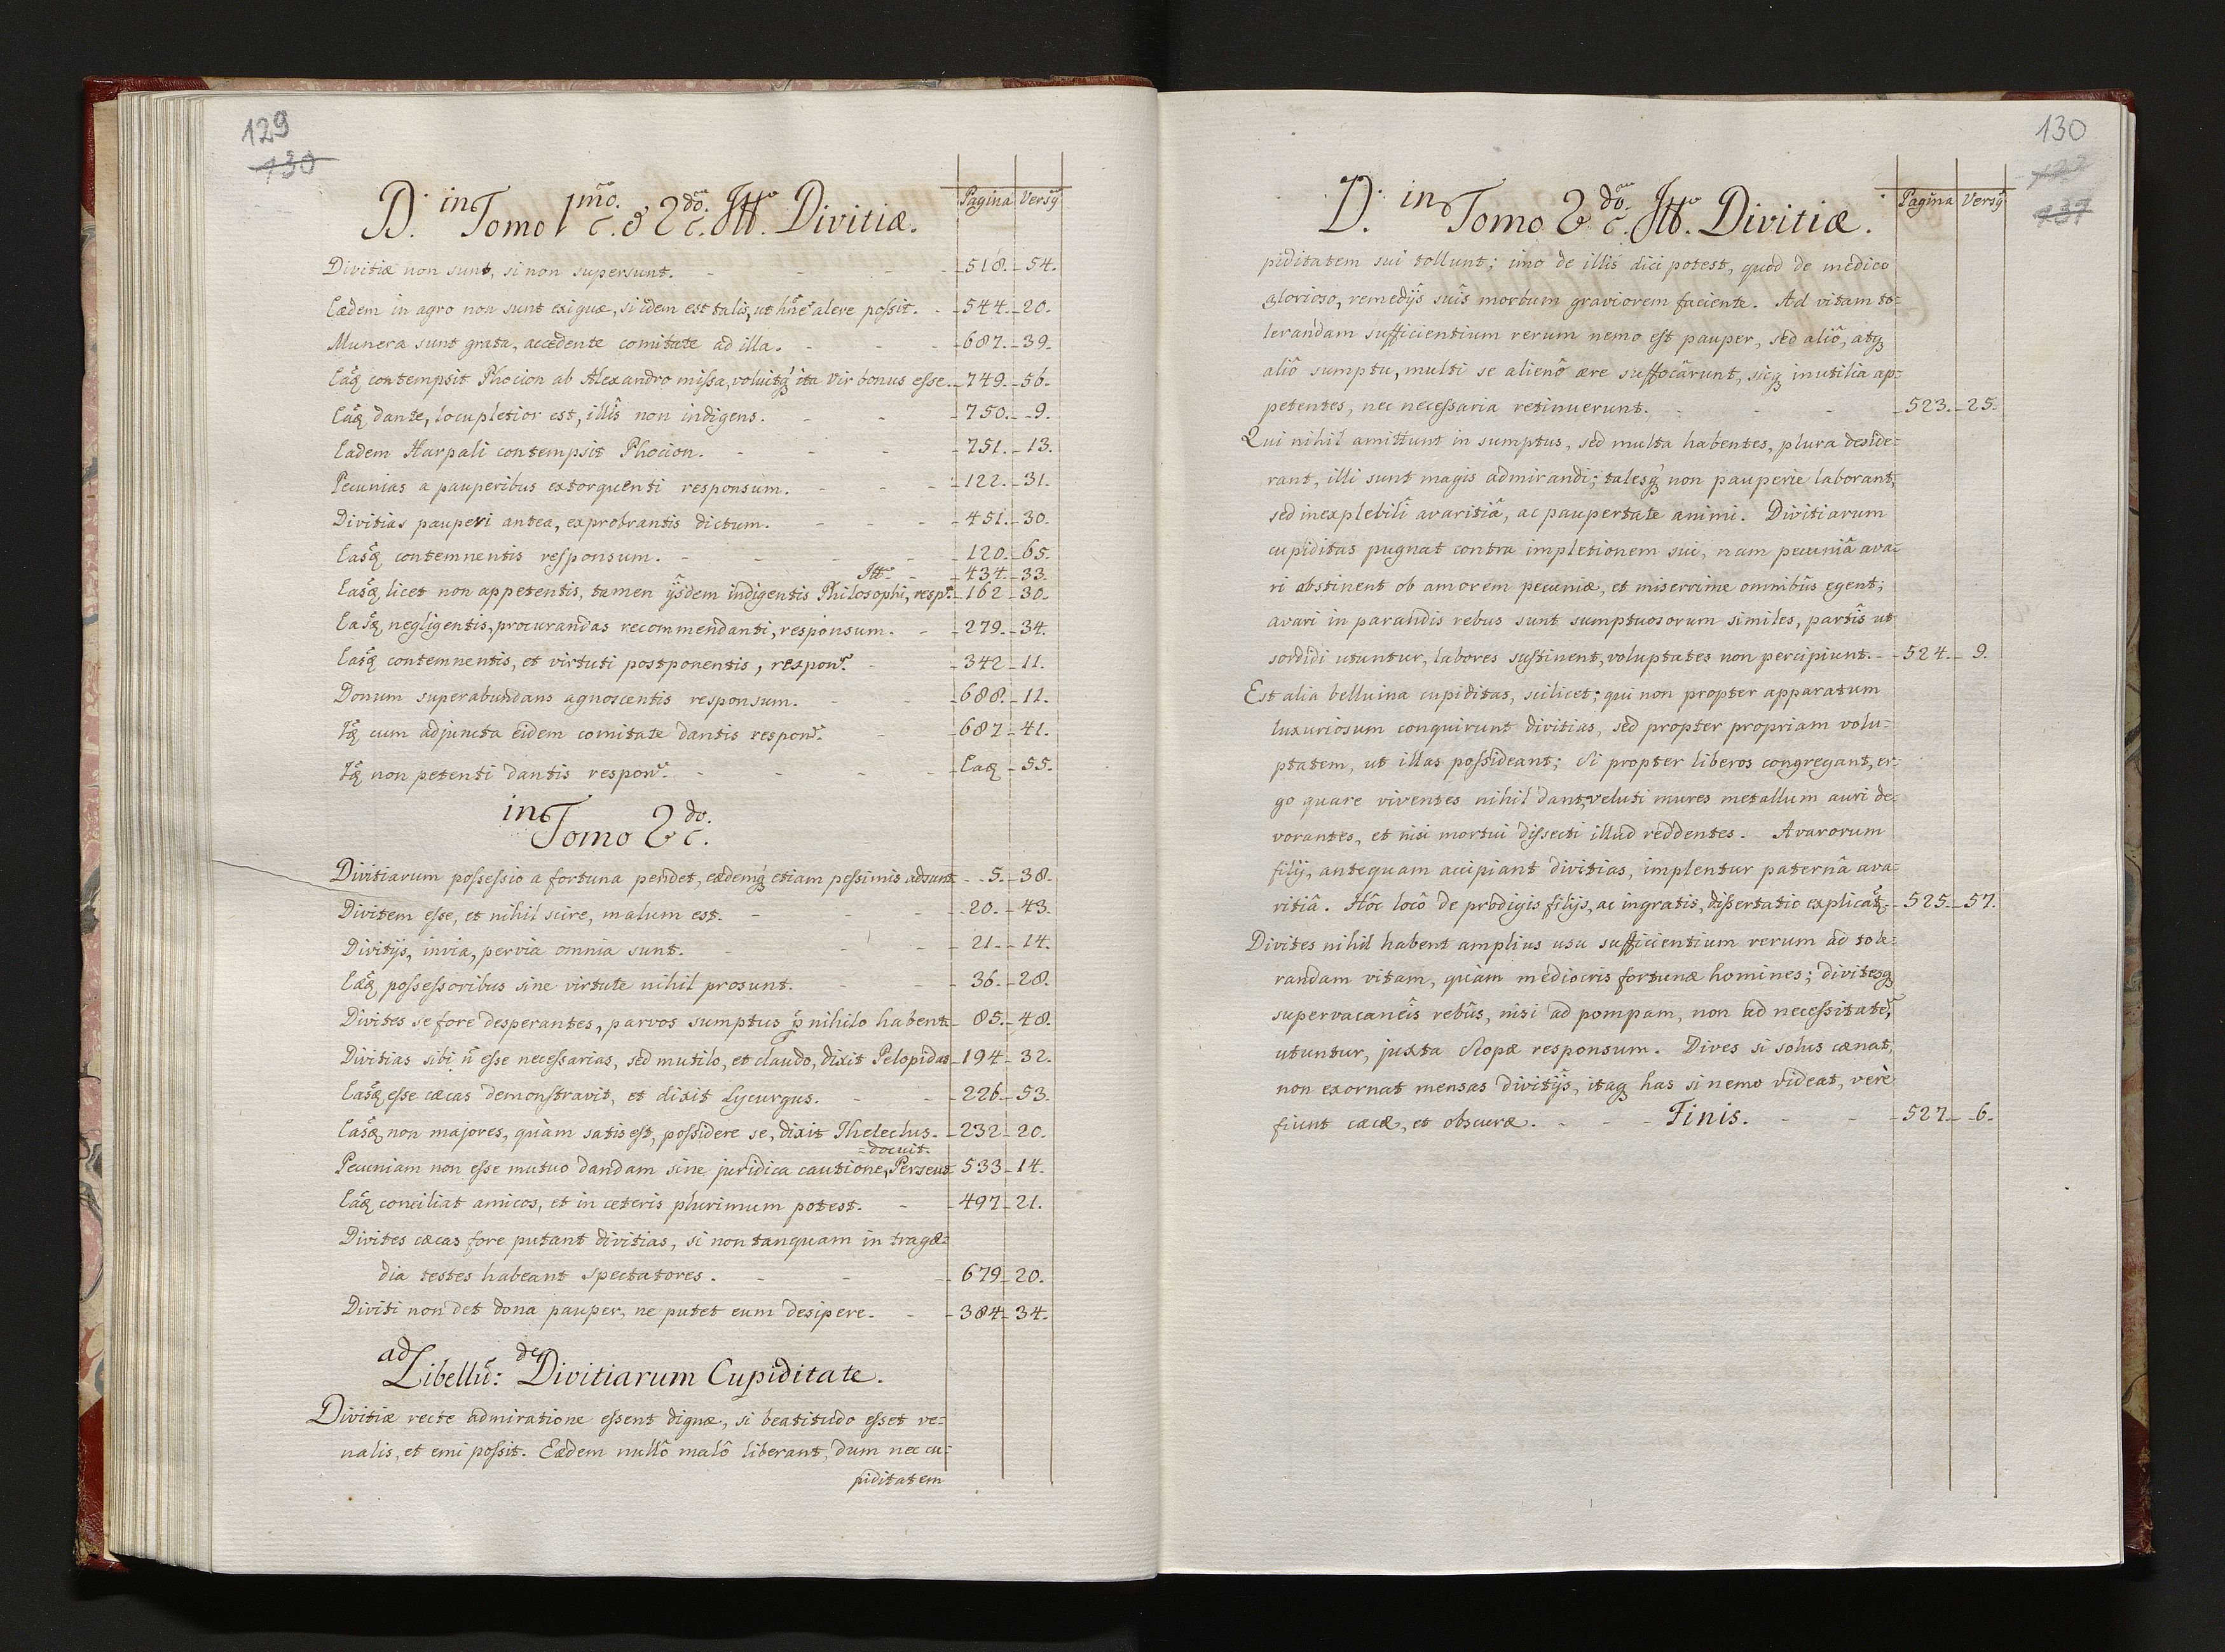 129
130
D. in Tomo 1mo. & 2do. Itto. Divitiæ.
Pagina Versq
Divitiæ non sunt, si non supersunt. - 518. - 54.
Eædem in agro non sunt exiguæ, si idem est talis, ut hñe alere possit. - 544. - 20.
Munera sunt grata, accedente comitate ad illa. - 687. - 39.
Eaq contempsit Phocion ab Alexandro missa, voluitq ita Vir bonus esse. - 749. - 56.
Eaq dante, locupletior est, illîs non indigens. - 750. - 9.
Eadem Harpali contempsit Phocion. - 751. - 13.
Pecunias a pauperibus extorquenti responsum. - 122. - 31.
Divitias pauperi antea, exprobrantis dictum. - 451. - 30.
Easq contemnentis responsum. - 120. - 65.
Itto. - 434. - 33.
Easq licet non appetentis, tamen ijsdem indigentis Philosophi, resp. - 162 - 30.
Easq negligentis, procurandas recommendanti, responsum. - 279. - 34.
Easq contemnentis, et virtuti postponentis, respon. - 342 - 11.
Donum superabundans agnoscentis responsum. - 688. - 11.
Iq cum adjuncta eidem comitate dantis respon. - 687 - 41.
Iq non petenti dantis respon. - Eaq - 55.
in Tomo 2do.
Divitiarum possessio a fortuna pendet, eædemq etiam pessimis adsunt - 5. - 38.
Divitem esse, et nihil scire, malum est. - 20. - 43.
Divitijs, invia, pervia omnia sunt. - 21. - 14.
Eaq possessoribus sine virtute nihil prosunt. - 36. - 28.
Divites se fore desperantes, parvos sumptus p nihilo habent - 85. - 48.
Divitias sibi ñ esse necessarias, sed mutilo, et claudo, dixit Pelopidas - 194 - 32.
Easq esse cæcas demonstravit, et dixit Lycurgus. - 226. - 53.
Easq non majores, quàm satis est, possidere se, dixit Thelectus. - 232 - 20.
=docuit.
Pecuniam non esse mutuo dandam sine juridica cautione, Perseus - 533 - 14.
Eaq conciliat amicos, et in ceteris plurimum potest. - 497 - 21.
Divites cæcas fore putant divitias, si non tanquam in tragæ=
dia testes habeant spectatores. - 679 - 20.
Diviti non det dona pauper, ne putet eum desipere. - 384 - 34.
ad Libellũ: de Divitiarum Cupiditate.
Divitiæ recte admiratione essent dignæ, si beatitudo esset ve=
nalis, et emi possit. Eædem nullô malô liberant, dum nec cu=
piditatem
130
137
D. in Tomo 2do. Itto. Divitiæ.
Pagina Versq
piditatem sui tollunt; imo de illis dici potest, quod de medico
glorioso, remedijs suîs morbum graviorem faciente. Ad vitam to=
lerandam sufficientium rerum nemo est pauper, sed aliô, atq
aliô sumptu, multi se alienô ære suffocârunt, sicq inutilia ap=
petentes, nec necessaria retinuerunt. - 523. - 25.
Qui nihil amittunt in sumptus, sed multa habentes, plura deside=
rant, illi sunt magis admirandi; talesq non pauperie laborant,
sed inexplebilî avaritiâ, ac paupertate animi. Divitiarum
cupiditas pugnat contra impletionem sui, nam pecuniâ ava=
ri abstinent ob amorem pecuniæ, et miserrime omnibus egent;
avari in parandis rebus sunt sumptuosorum similes, partîs ut
sordidi utuntur, labores sustinent, voluptates non percipiunt. - 524. - 9.
Est alia belluina cupiditas, scilicet; qui non propter apparatum
luxuriosum conquirunt divitias, sed propter propriam volu=
ptatem, ut illas possideant; Si propter liberos congregant, er=
go quare viventes nihil dant, veluti mures metallum auri de=
vorantes, et nisi mortui dissecti illud reddentes. Avarorum
filij, antequam accipiant divitias, implentur paternâ ava=
ritiâ. Hôc locô de prodigis filijs, ac ingratis, dissertatio explicaq - 525. - 57.
Divites nihil habent amplius usu sufficientium rerum ad tole=
randam vitam, quàm mediocris fortunæ homines; divitesq
supervacaneîs rebûs, nisi ad pompam, non ad necessitatẽ,
utuntur, juxta Scopæ responsum. Dives si solus cænat,
non exornat mensas divitijs, itaq has si nemo videat, verè
fiunt cæcæ, et obscuræ. - Finis. - 527. - 6.